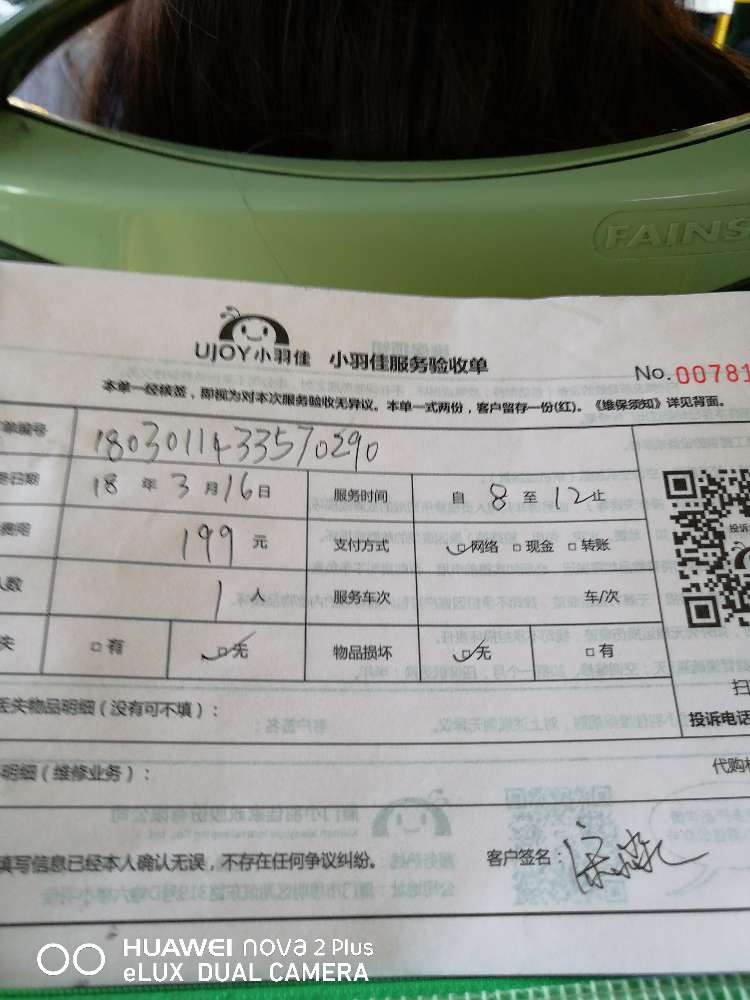 FAINS
UJOY小羽佳 小羽佳服务验收单
No.00781
本单一经核签，即视为对本次服务验收无异议。本单一式两份，客户留存一份(红)。《维保须知》详见背面。
单编号 1803011433570290
日期 18 年 3 月 16 日 服务时间 自 8 至 12 止
费用 199 元 支付方式 网络 现金 转账
人数 1 人 服务车次 车/次
失 有 无 物品损坏 无 有
投诉
丢失物品明细（没有可不填）：
扫
投诉电话
明细（维修业务）：
代购
填写信息已经本人确认无误，不存在任何争议纠纷。 客户签名：
HUAWEI nova 2 Plus
eLUX DUAL CAMERA